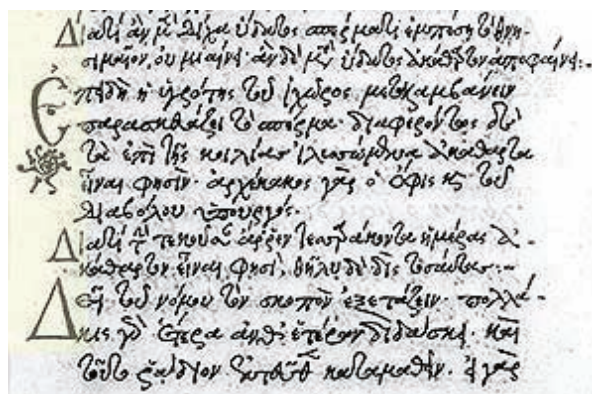 Διατί ἂν μὲν δίχα ὕδατος σπέρματι ἐμπέσῃ τὸ θνη-
σιμαῖον, οὐ μιαίνει· ἂν δὲ μεθ' ὕδατος ἀκάθαρτον ἀποφαίνει:-
Ἐπειδὴ ἡ ὑγρότης τοῦ ἰχῶρος μεταλαμβάνειν
παρασκευάζει τὸ σπέρμα· διαφερόντως δὲ
τὰ ἐπὶ τῆς κοιλίας ἀκάθαρτα
εἶναι φησὶν· ἀρχέκακος γὰρ ὁ ὄφις καὶ τοῦ
διαβόλου ὑπουργός·
Διατί τὴν τεκοῦσαν ἄρρεν τεσσαράκοντα ἡμέρας ἀ-
κάθαρτον εἶναι φησὶ, θῆλυ δὲ δὶς τοσαύτας:-
Δεῖ τοῦ νόμου τὸν σκοπὸν ἐξετάζειν· πολλά-
κις γὰρ ἕτερα ἀνθ' ἑτέρων διδάσκει· καὶ
τοῦτο ῥᾴδιον ἐντεῦθεν καταμαθεῖν· εἰ γὰρ